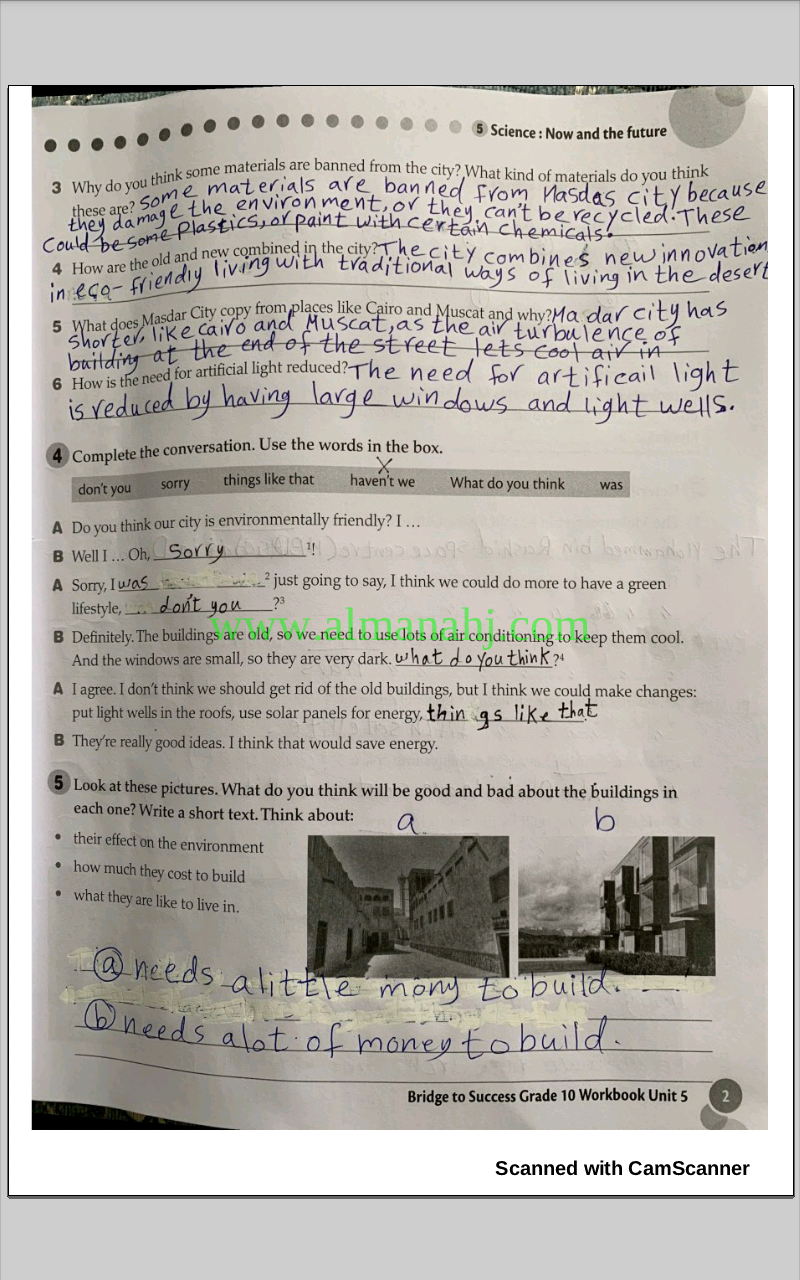 5 Science : Now and the future
3 Why do you think some materials are banned from the city? What kind of materials do you think
these are? Some materials are banned from Masdas city because
they damage the environment, or they can't be recycled. These
Could be some Plastics, or paint with certain chemicals.
4 How are the old and new combined in the city? The city combines new innovation
in eco-friendly living with traditional ways of living in the desert
5 What does Masdar City copy from places like Cairo and Muscat and why? Ma dar city has
shorter, like cairo and Muscat, as the air turbulence of
building at the end of the street lets cool air in
6 How is the need for artificial light reduced? The need for artificail light
is reduced by having large windows and light wells.
4 Complete the conversation. Use the words in the box.
don't you sorry things like that haven't we What do you think was
A Do you think our city is environmentally friendly? I …
B Well I … Oh, Sorry 1!
A Sorry, I was 2 just going to say, I think we could do more to have a green
lifestyle, don't you ?3
www.almanahj.com
B Definitely. The buildings are old, so we need to use lots of air conditioning to keep them cool.
And the windows are small, so they are very dark. what do you think ?4
A I agree. I don't think we should get rid of the old buildings, but I think we could make changes:
put light wells in the roofs, use solar panels for energy, thin gs like that
B They're really good ideas. I think that would save energy.
5 Look at these pictures. What do you think will be good and bad about the buildings in
each one? Write a short text. Think about:
a b
• their effect on the environment
• how much they cost to build
• what they are like to live in.
a needs a little mony to build.
b needs alot of money to build.
Bridge to Success Grade 10 Workbook Unit 5 2
Scanned with CamScanner